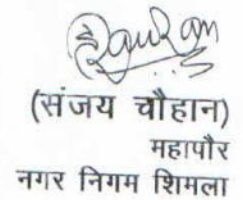 (संजय चौहान)
महापौर
नगर निगम शिमला